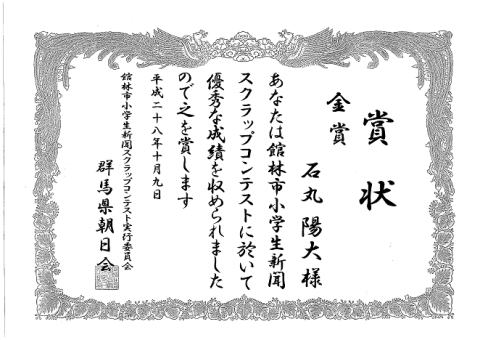 賞状
金賞
石丸 陽大 様
あなたは館林市小学生新聞
スクラップコンテストに於いて
優秀な成績を収められました
ので之を賞します
平成二十八年十月九日
館林市小学生新聞スクラップコンテスト実行委員会
群馬県朝日会